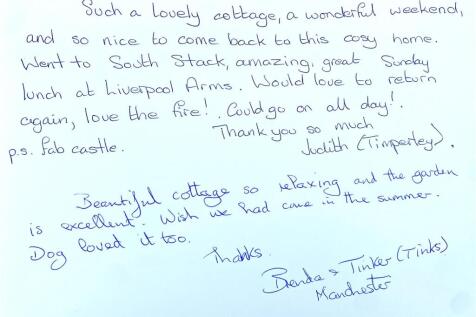 Such a lovely cottage, a wonderful weekend,
and so nice to come back to this cosy home.
Went to South Stack, amazing, great Sunday
lunch at Liverpool Arms. Would love to return
again, love the fire! Could go on all day!
Thank you so much
p.s. fab castle.
Judith (Timperley).
Beautiful cottage so relaxing and the garden
is excellent. Wish we had came in the summer.
Dog loved it too.
Thanks.
Brenda & Tinker (Tinks)
Manchester